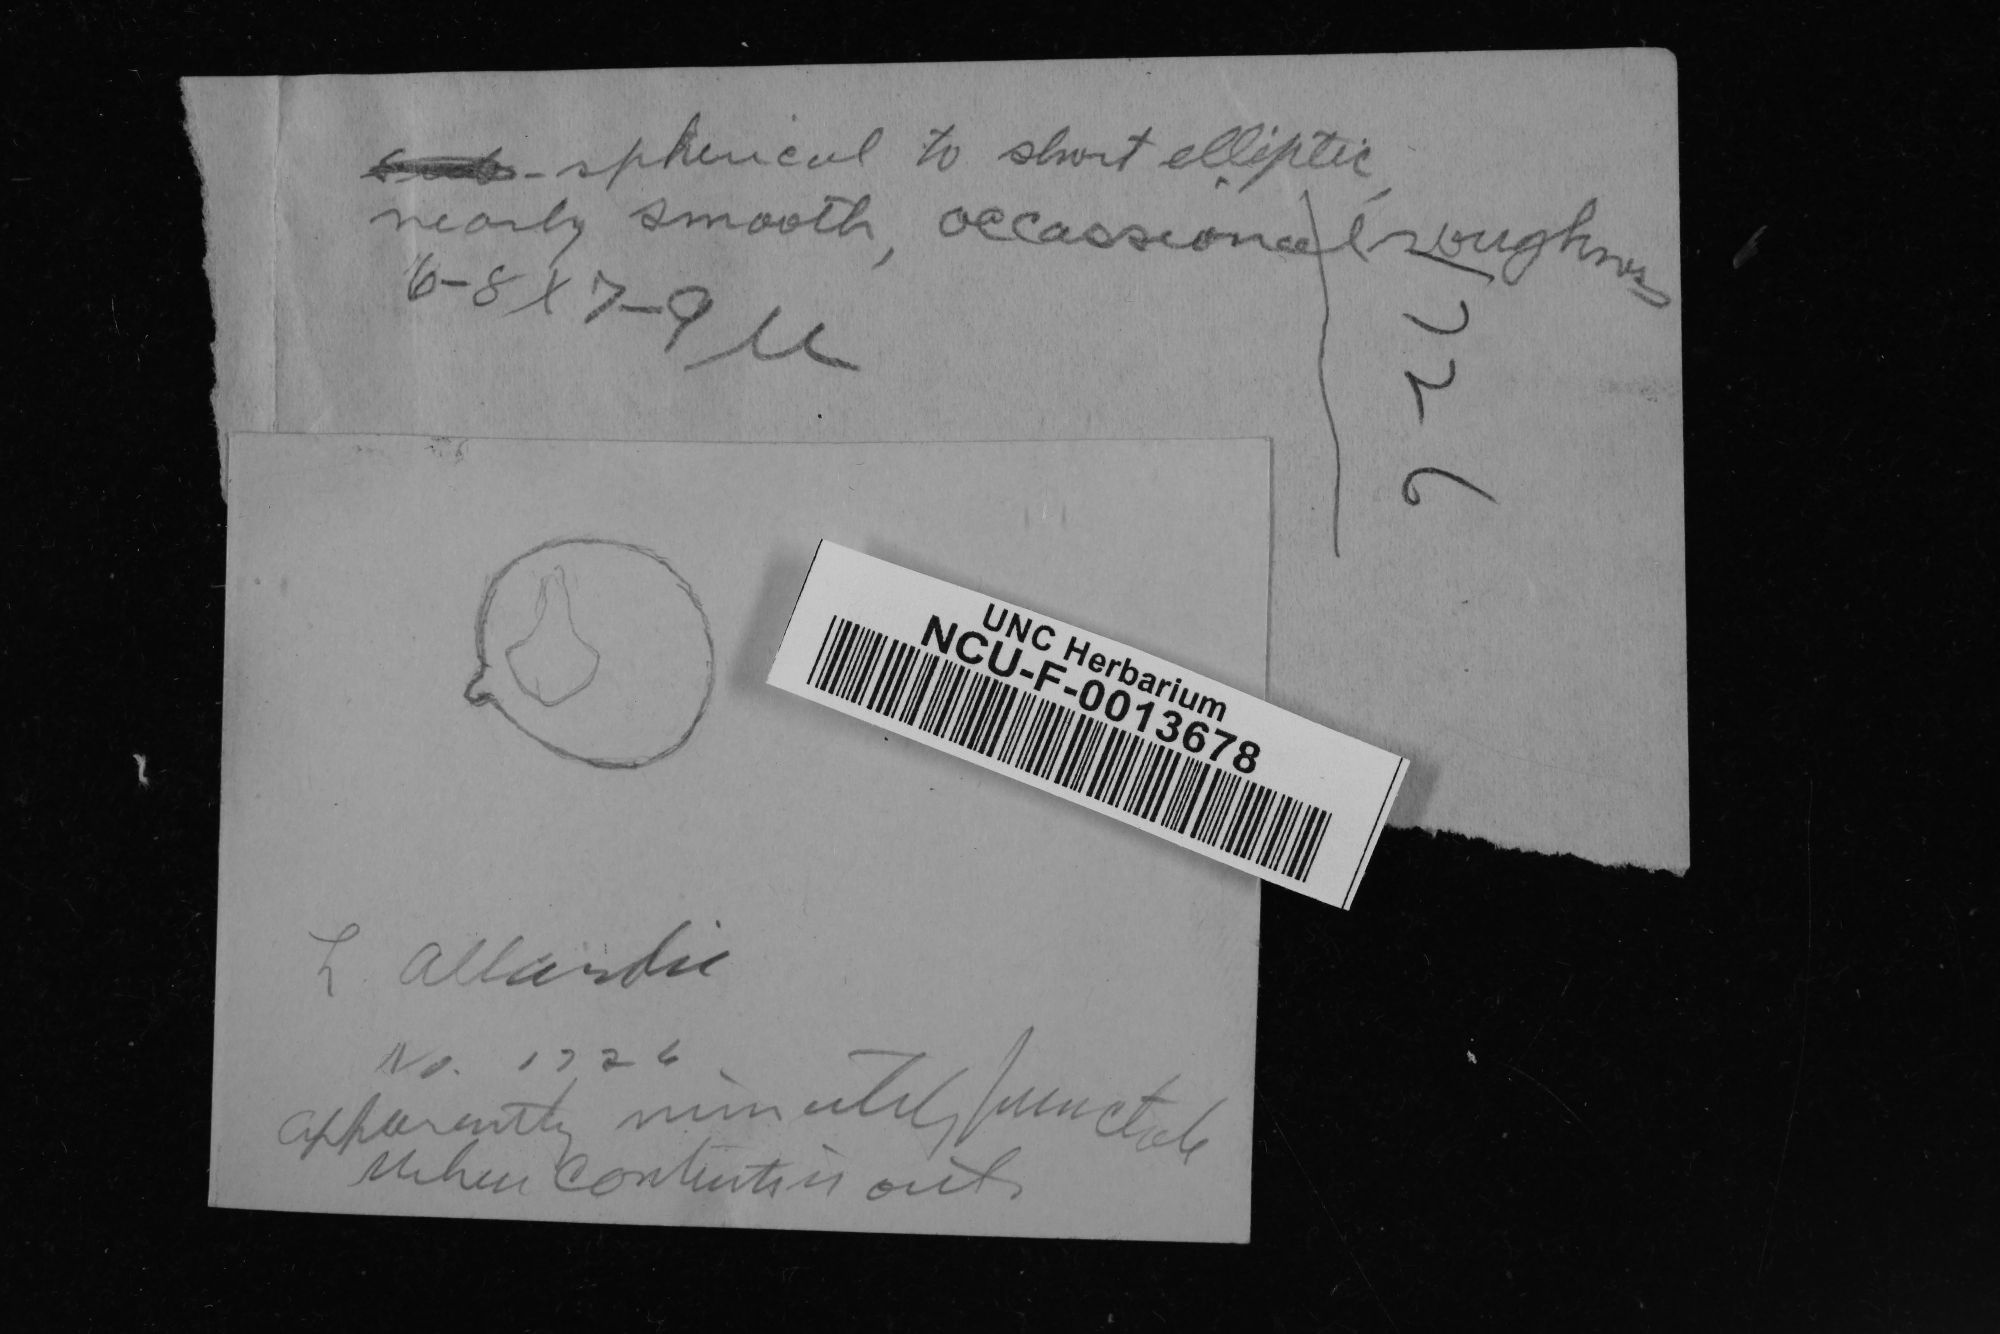 -spherical to short elliptic,
nearly smooth, occassional roughness
6-8 X 7-9 µ
1726
UNC Herbarium
NCU-F-0013678
L. allardii
No. 1726
apparently minutely punctate
when content is out